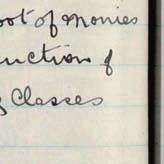 oot of monies
uction of
g Classes